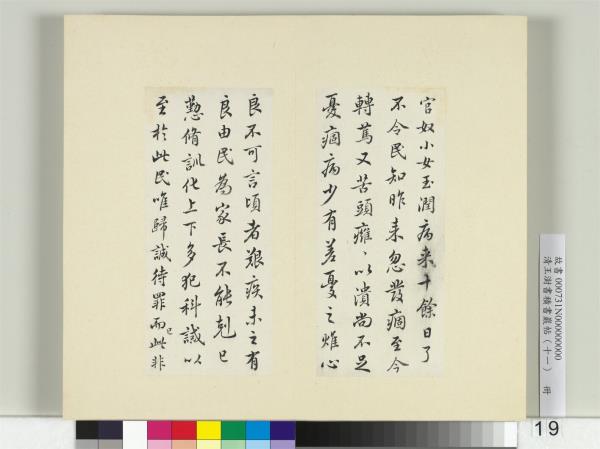 官奴小女玉潤病来十餘日了
不令民知昨来忽發痼至今
轉篤又苦頭癰〻以潰尚不足
憂痼病少有差憂之燋心
良不可言頃者艱疾未之有
良由民為家長不能剋已
懃脩訓化上下多犯科誡以
至於此民唯歸誠待罪而已此非
故書000731N000000000
清王澍書積書巖帖（十一） 冊
19